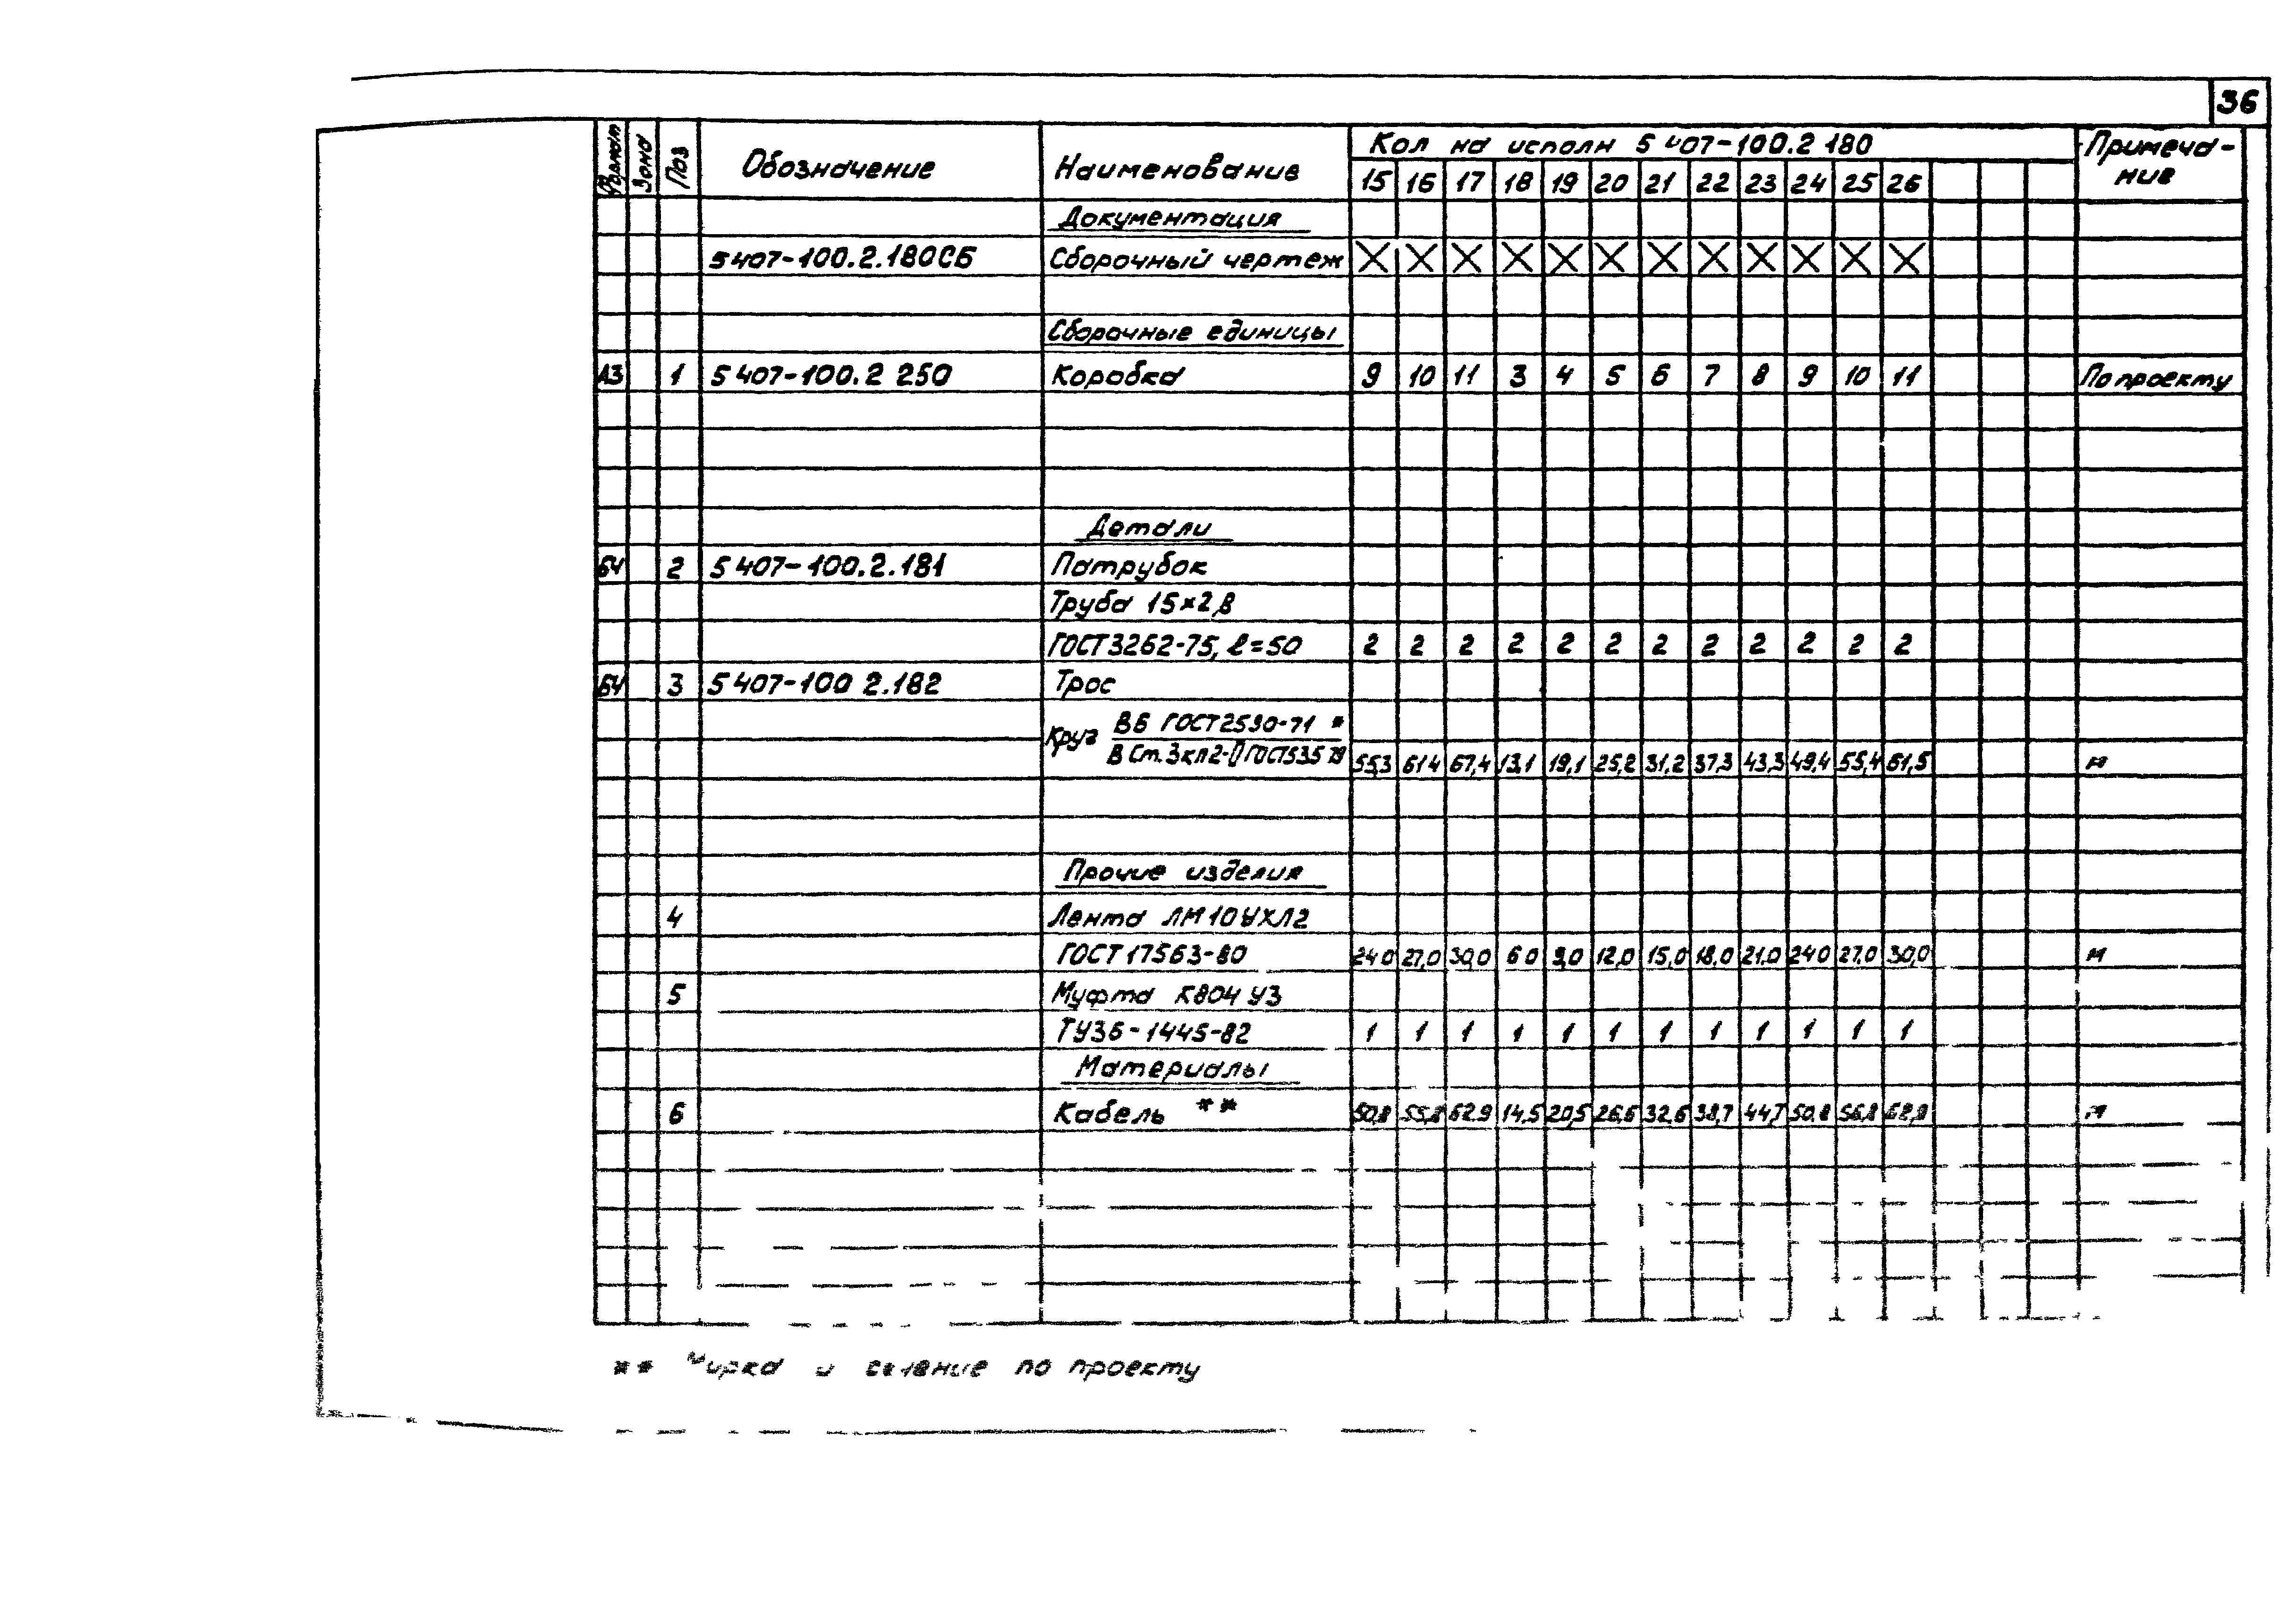 36
Формат Зона Поз Обозначение Наименование Кол на исполн 5 407-100.2 180 Примеча-
ние
15 16 17 18 19 20 21 22 23 24 25 26
Документация
5 407-100.2.180СБ Сборочный чертеж X X X X X X X X X X X X
Сборочные единицы
А3 1 5 407-100.2 250 Коробка 9 10 11 3 4 5 6 7 8 9 10 11 По проекту
Детали
БЧ 2 5 407-100.2.181 Патрубок
Труба 15×2,8
ГОСТ 3262-75, ℓ=50 2 2 2 2 2 2 2 2 2 2 2 2
БЧ 3 5 407-100 2.182 Трос
Круг В6 ГОСТ 2590-71 *
В Ст.3кп2-II ГОСТ 535 79 55,3 61 4 67,4 13,1 19,1 25,2 31,2 37,3 43,3 49,4 55,4 61,5 м
Прочие изделия
4 Лента ЛМ 10 УХЛ2
ГОСТ 17563-80 24 0 27,0 30,0 6 0 9,0 12,0 15,0 18,0 21,0 24 0 27,0 30,0 м
5 Муфта К804 У3
ТУ36-1445-82 1 1 1 1 1 1 1 1 1 1 1 1
Материалы
6 Кабель ** 50,8 55,8 62.9 14,5 20,5 26,6 32,6 38,7 44,7 50,8 56,8 62,9 м
** Марка и сечение по проекту